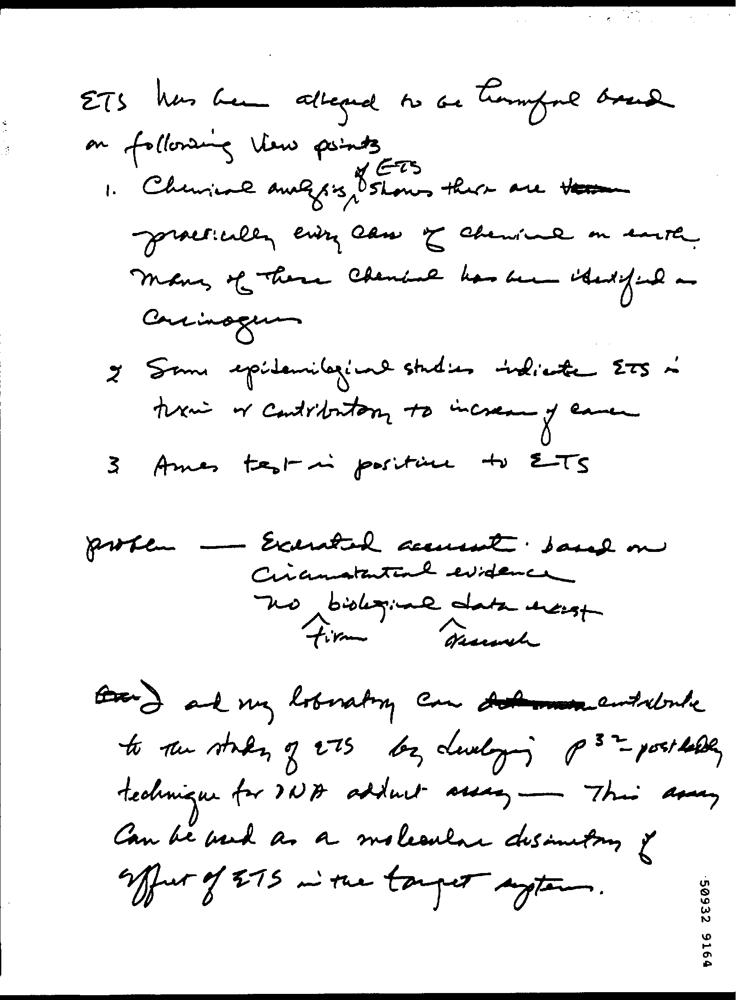 ETS has been alleged to be harmful based
on following view points
of ETS
1. Chemical analysis, shows there are
practically every class of chemical on earth.
Many of these chemical has been identified as
Carcinogens
2 Some epidemilogical studies indicate ETS is
toxic or contributory to increase of cancer
3 Ames test is positive to ETS
problem — based on
Circumstantial evidence
no biological data exist
firm research
I and my laboratory can contribute
to the study of ETS by developing P32-post
technique for DNA adduct assay — This assay
Can be used as a molecular dosimetry of
effect of ETS in the target system.
50932 9164